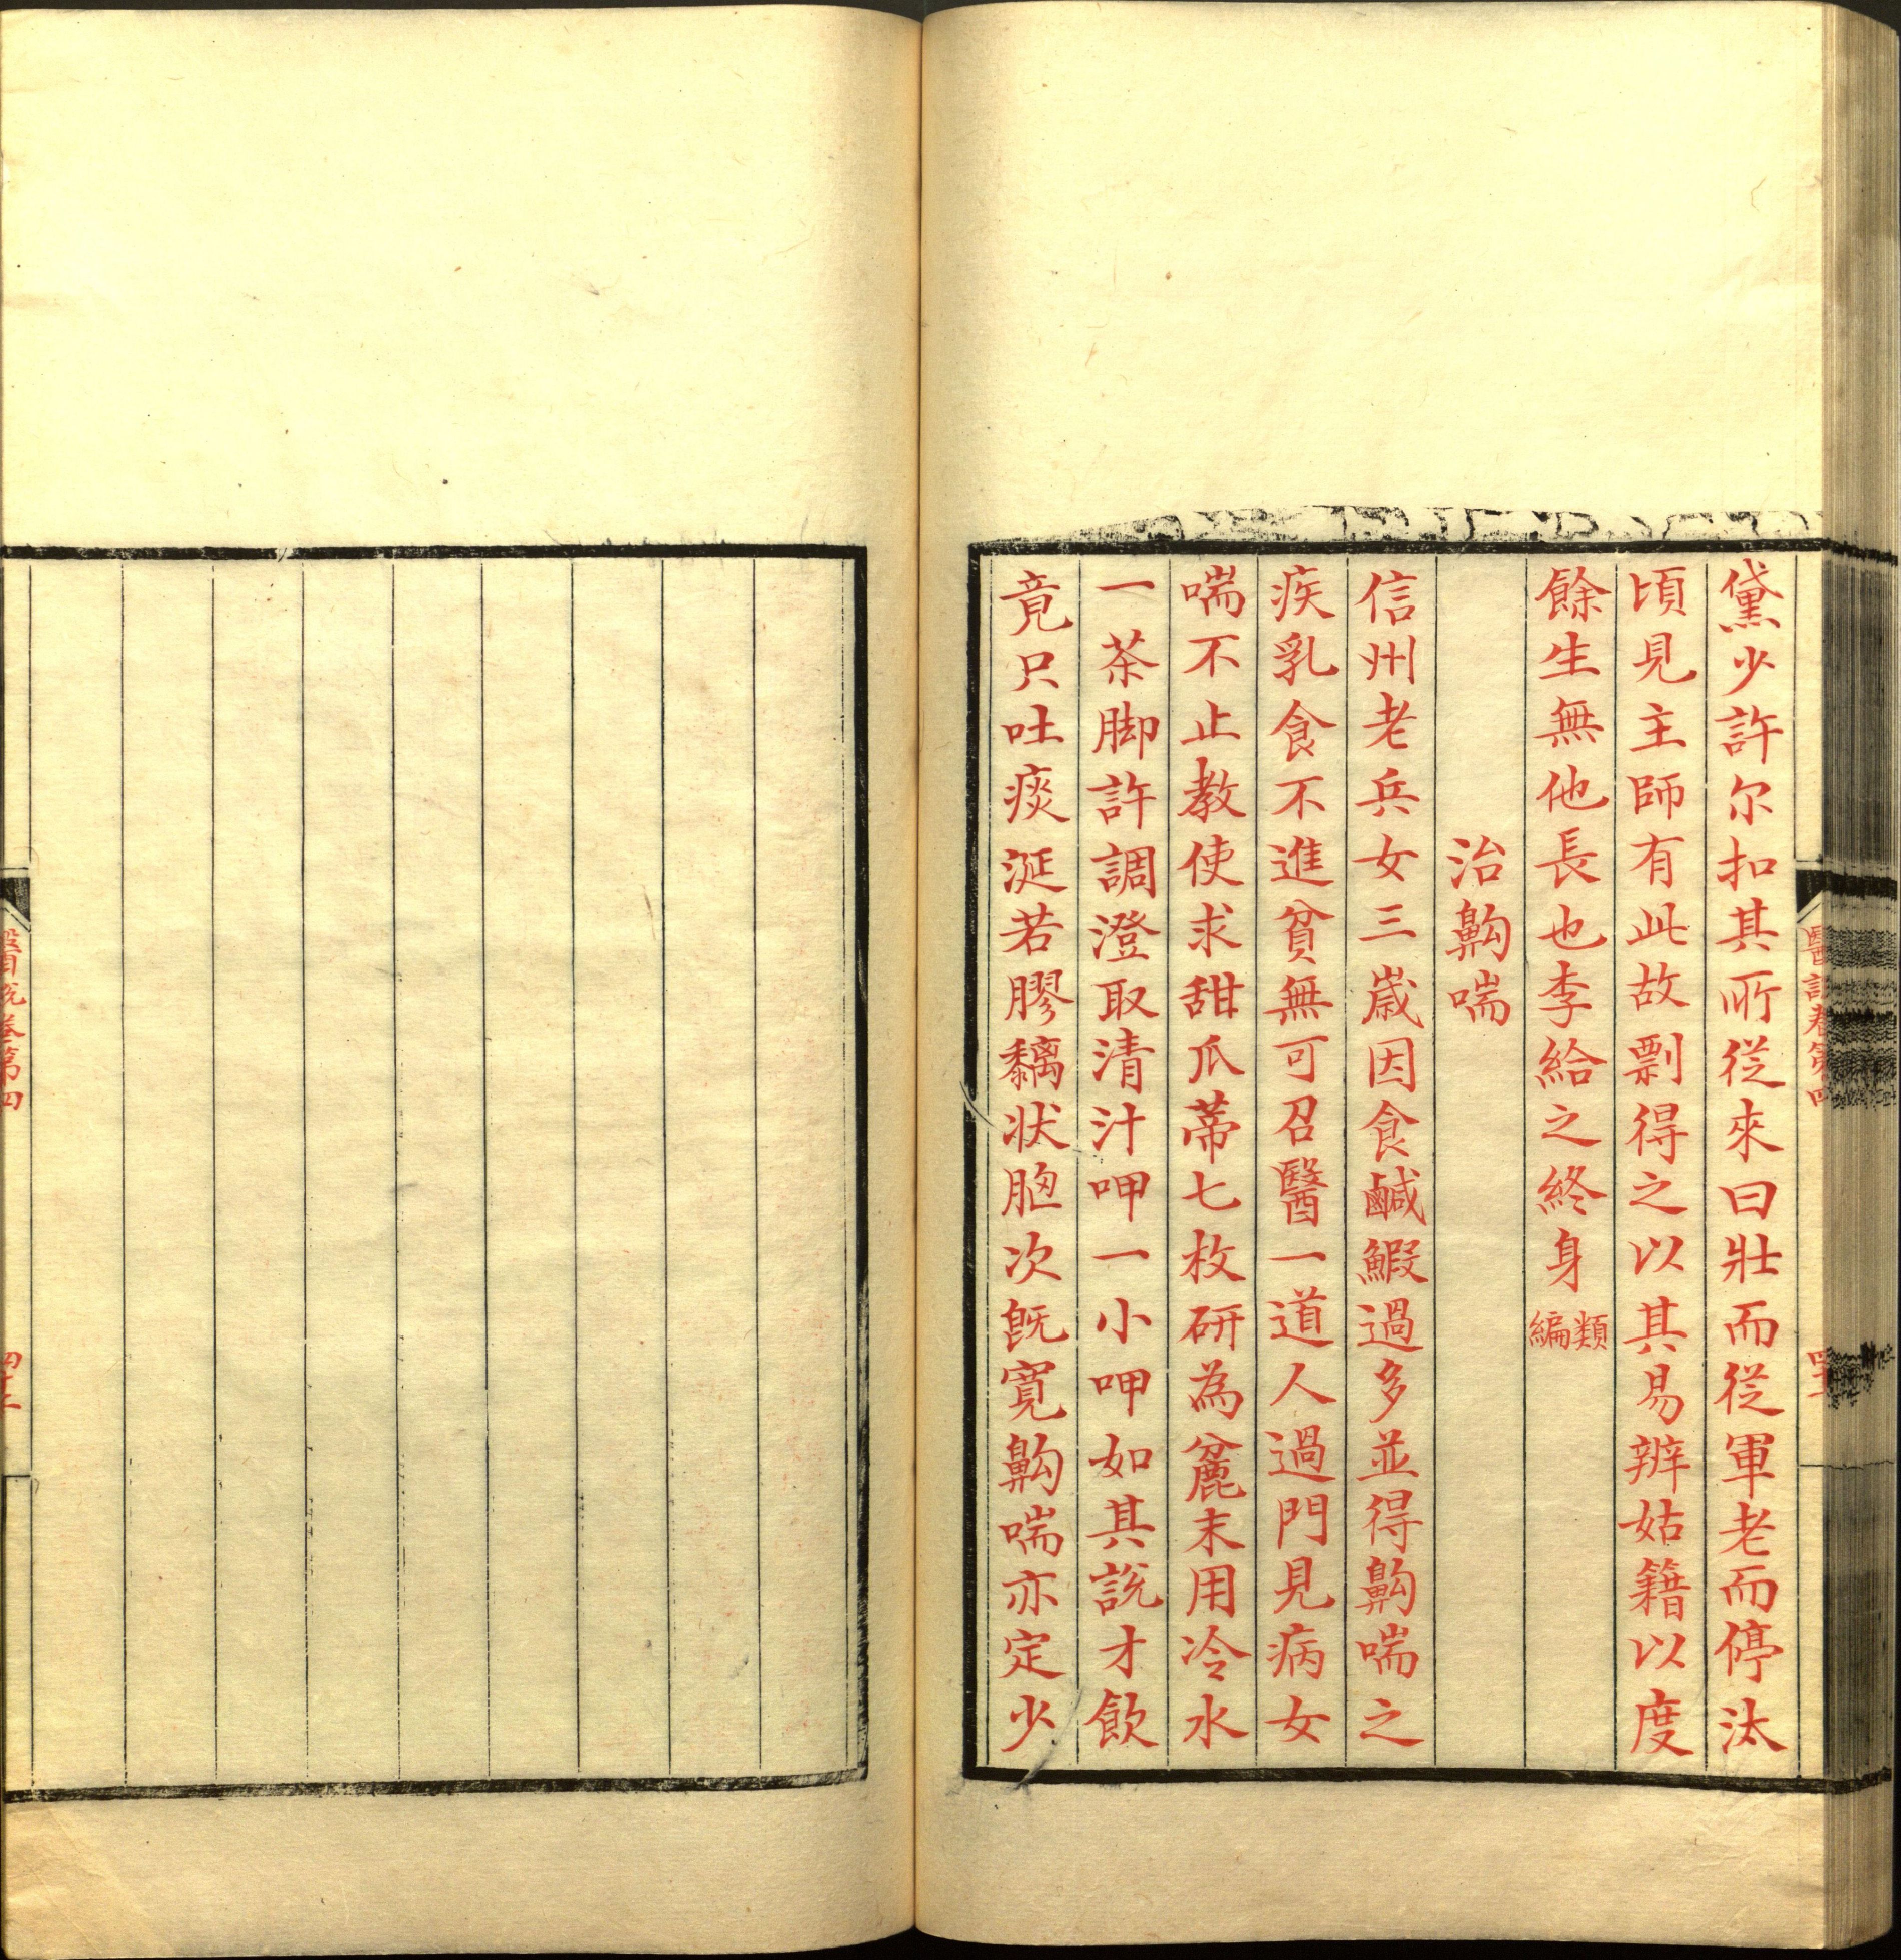 黛少許尔扣其所從來曰壯而從軍老而停汰
頃見主師有此故剽得之以其易辨姑籍以度
餘生無他長也李給之終身類編
治齁喘
信州老兵女三歲因食鹹鰕過多並得齁喘之
疾乳食不進貧無可召醫一道人過門見病女
喘不止教使求甜瓜蒂七枚研為麄末用冷水
一茶脚許調澄取清汁呷一小呷如其説才飲
竟只吐痰涎若膠黐状胷次旣寛齁喘亦定少
醫説卷第四
醫説卷第四